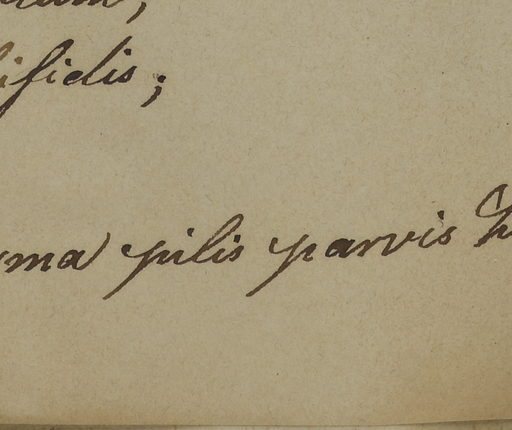 ifidis;
ma pilis parvis